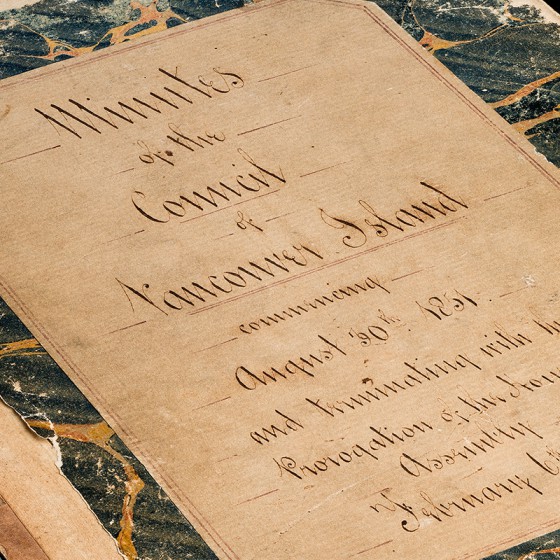 Minutes
of the
Council
of
Vancouver Island
commencing
August 30th 1851.
and terminating with
Prorogation of the
Assembly
February